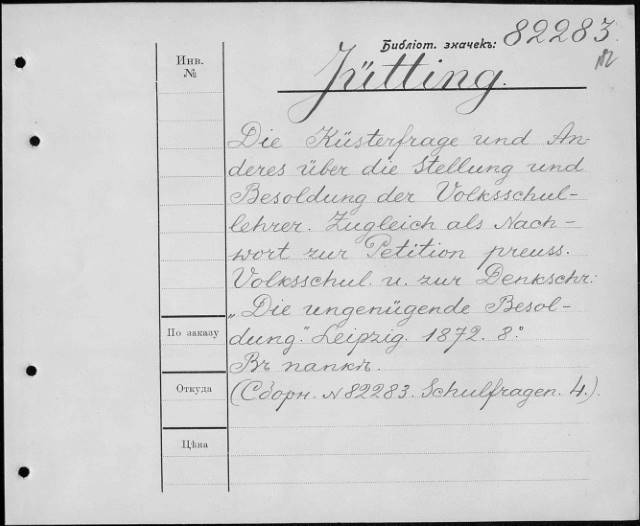 Библіот. значекъ: 82283.
Инв.
№
Jütting.
Die Küsterfrage und An-
deres über die Stellung und
Besoldung der Volksschul-
lehrer. Zugleich als Nach-
wort zur Petition preuss.
Volksschul. u. zur Denkschr.:
„Die ungenügende Besol-
dung." Leipzig. 1872. 8.°
Въ папкѣ.
(Сборн. №82283. Schulfragen. 4.).
По заказу
Откуда
Цѣна